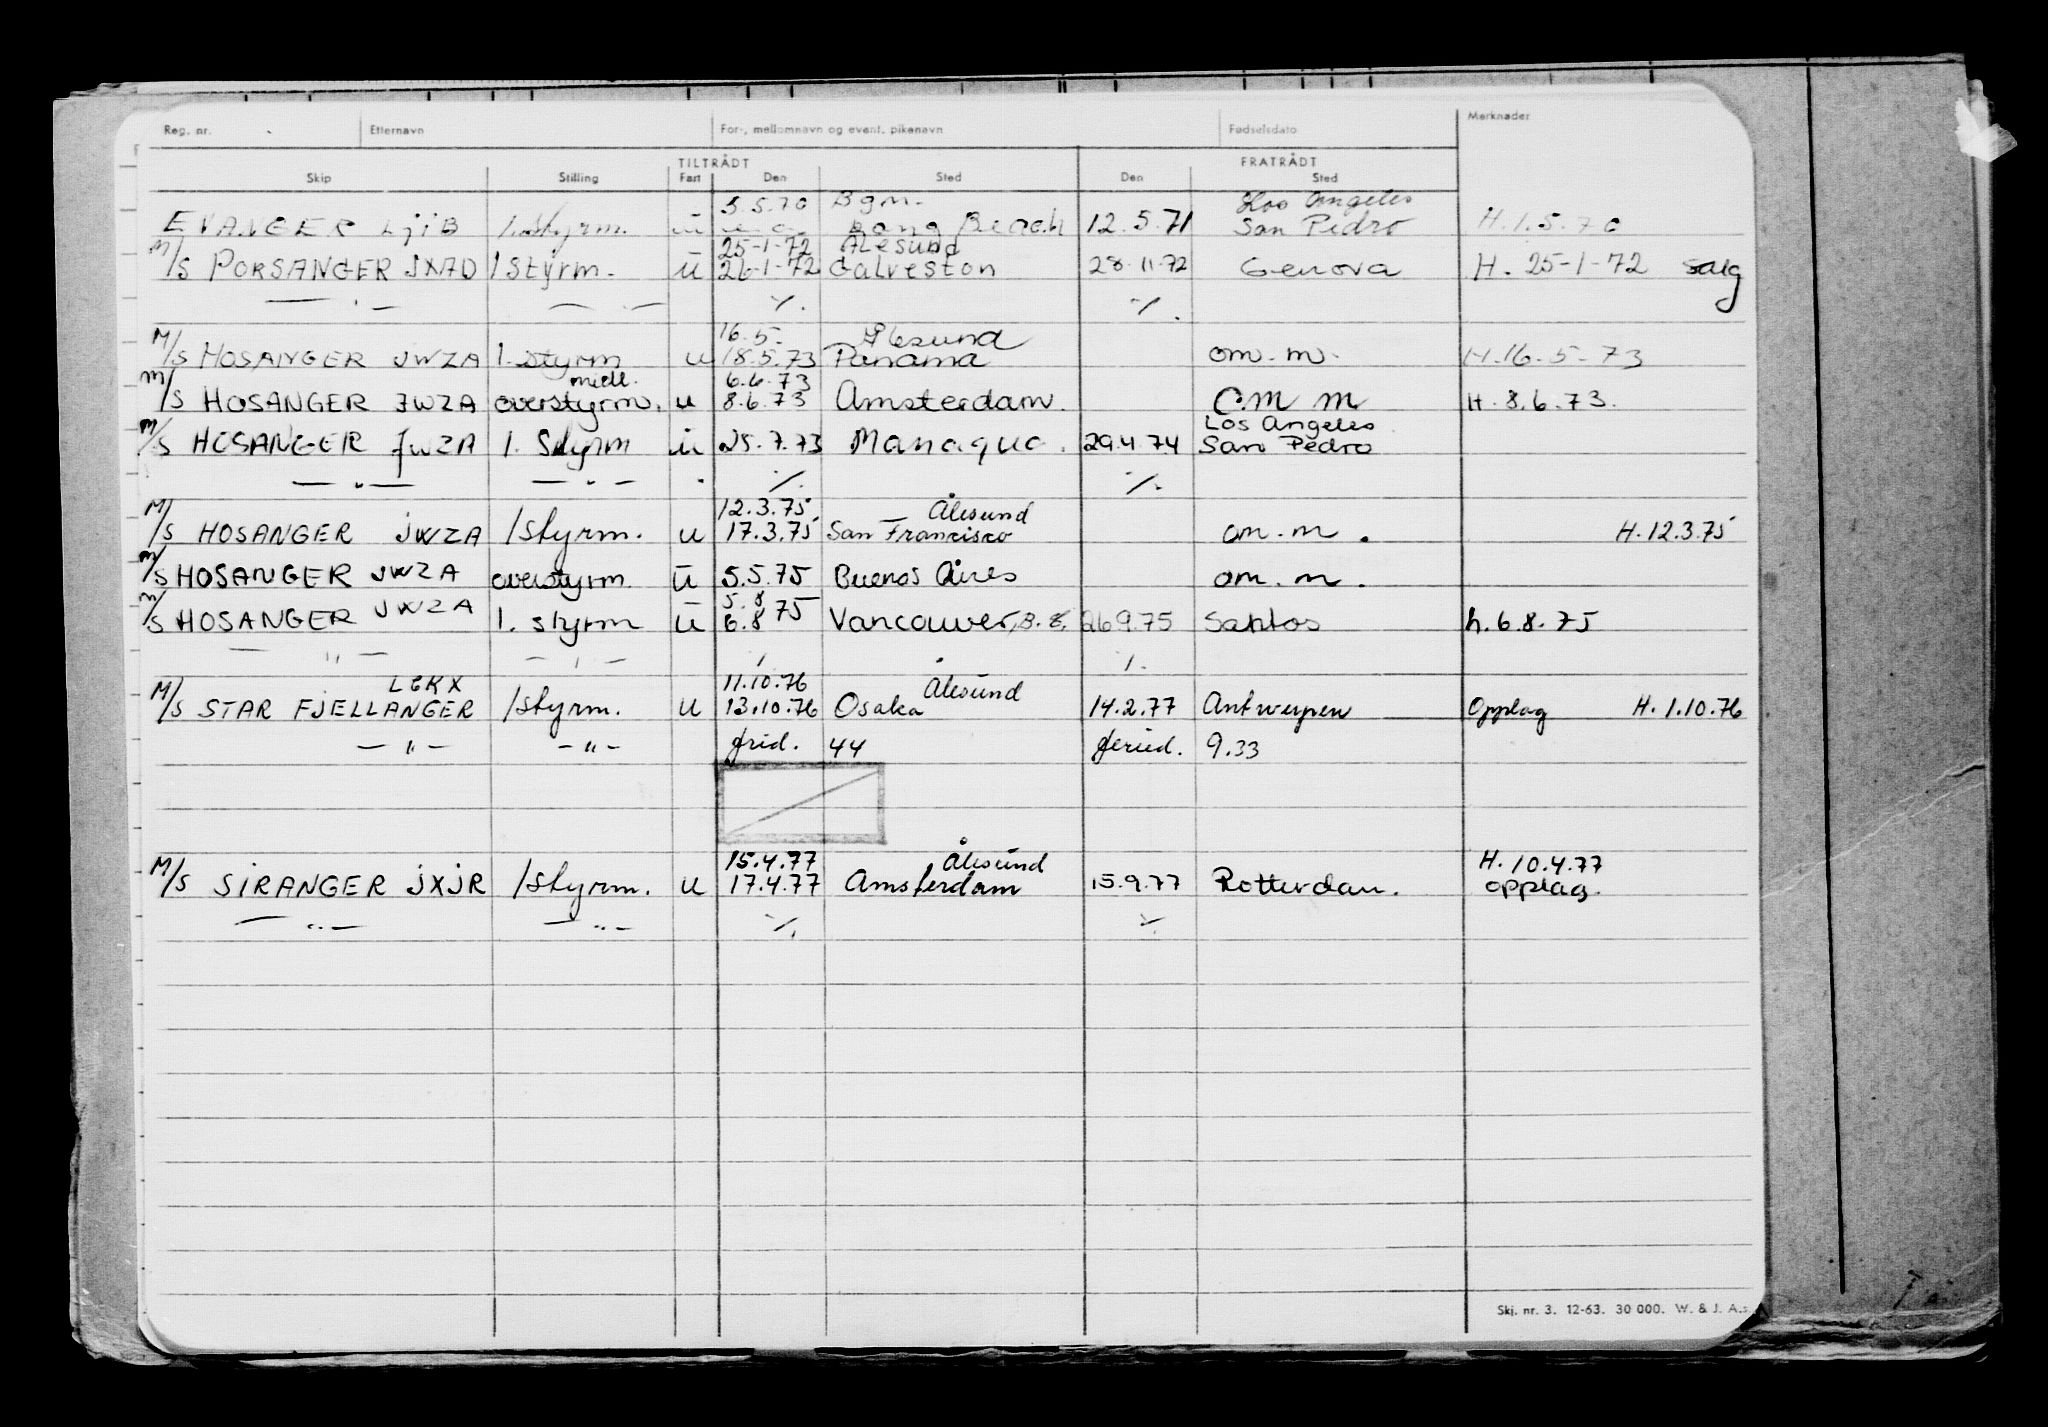 Reg. nr. Etternavn For-, mellomnavn og event. pikenavn Fødselsdato Merknader
TILTRÅDT FRATRÅDT
Skip Stilling Fart Den Sted Den Sted
5.5.70 Bgm. Los Angeles
EVANGER LJIB 1. Styrm. u Long Beach 12.5.71 San Pedro H.1.5.70
25-1-72 Ålesund
M/S PORSANGER JXAD 1 Styrm. u 26-1-72 Galveston 28.11.72 Genova H. 25-1-72 salg
— " — — " — ./. ./.
16.5. Ålesund
M/S HOSANGER JWZA 1. styrm u 18.5.73 Panama om. m. H.16.5-73
midl. 6.6.73
M/S HOSANGER JWZA overstyrm. u 8.6.73 Amsterdam. o.m m H. 8.6.73.
Los Angeles
M/S HOSANGER JWZA 1. Styrm u 25.7.73 Managua. 29.4.74 San Pedro
— " — — " — ./. ./.
12.3.75 Ålesund
M/S HOSANGER JWZA 1 styrm. u 17.3.75 San Francisco om. m. H. 12.3.75
M/S HOSANGER JWZA overstyrm. u 5.5.75 Buenos Aires om. m.
5.8
M/S HOSANGER JWZA 1. styrm u 6.8 75 Vancouver, B.C. 26 9.75 Santos h. 6.8.75
— " — — " — ./. ./.
LEKX 11.10.76 Ålesund
M/S STAR FJELLANGER 1 styrm. u 13.10.76 Osaka 14.2.77 Antwerpen Opplag H. 1.10.76
— " — — " — 44 9.33
15.4.77 Ålesund H. 10.4.77
M/S SIRANGER JXJR 1 styrm. u 17.4.77 Amsterdam 15.9.77 Rotterdam. opplag.
— " — — " — ./. ./.
Skj. nr. 3. 12-63. 30 000. W. & J. A.s.